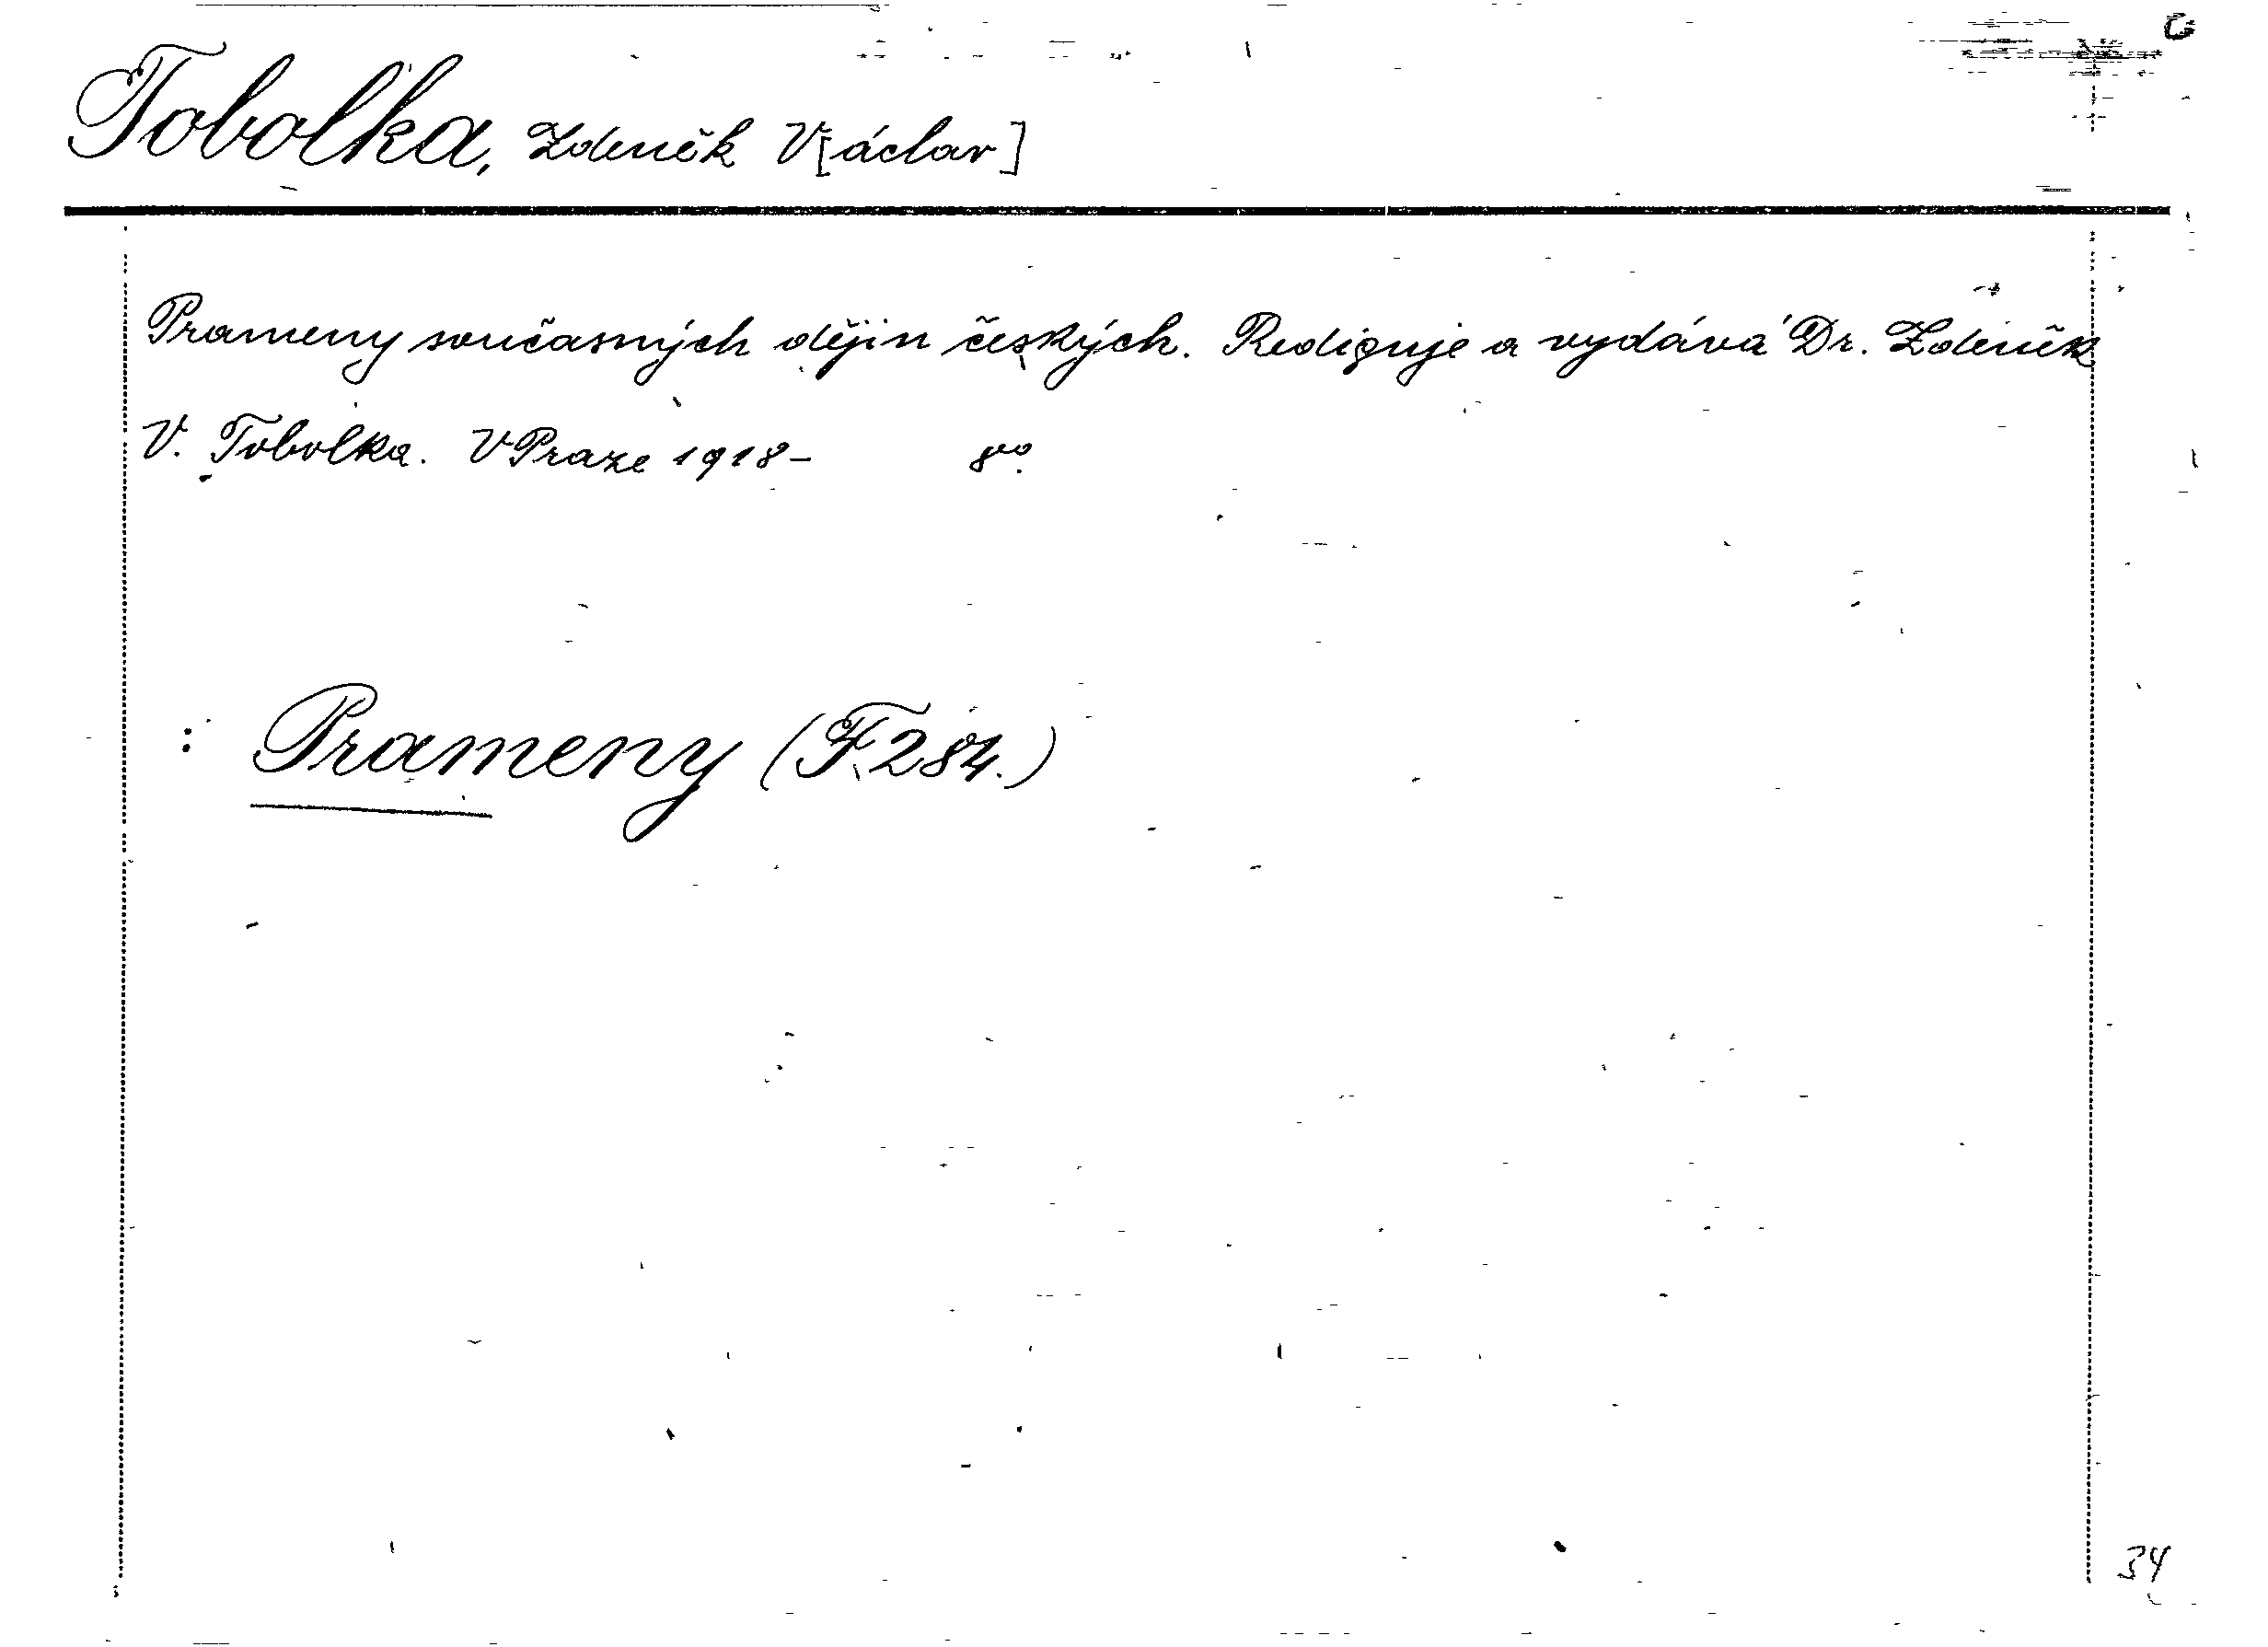 Tobolka, Zdeněk V[áclav]
Prameny současných dějin českých. Rediguje a vydává Dr. Zdeněk
V. Tobolka. V Praze 1918- 8vo.
: Prameny (F. 284.)
34